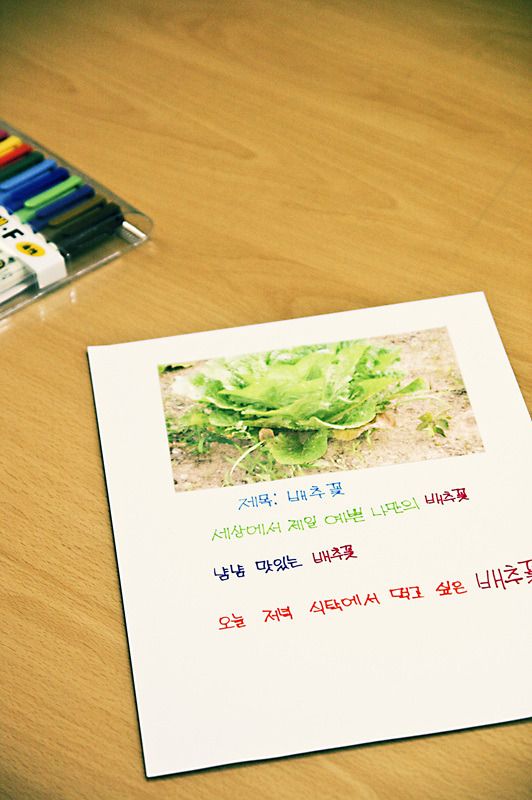 F
제목: 배추꽃
세상에서 제일 예쁜 나만의 배추꽃
냠냠 맛있는 배추꽃
오늘 저녁 식탁에서 먹고 싶은 배추꽃